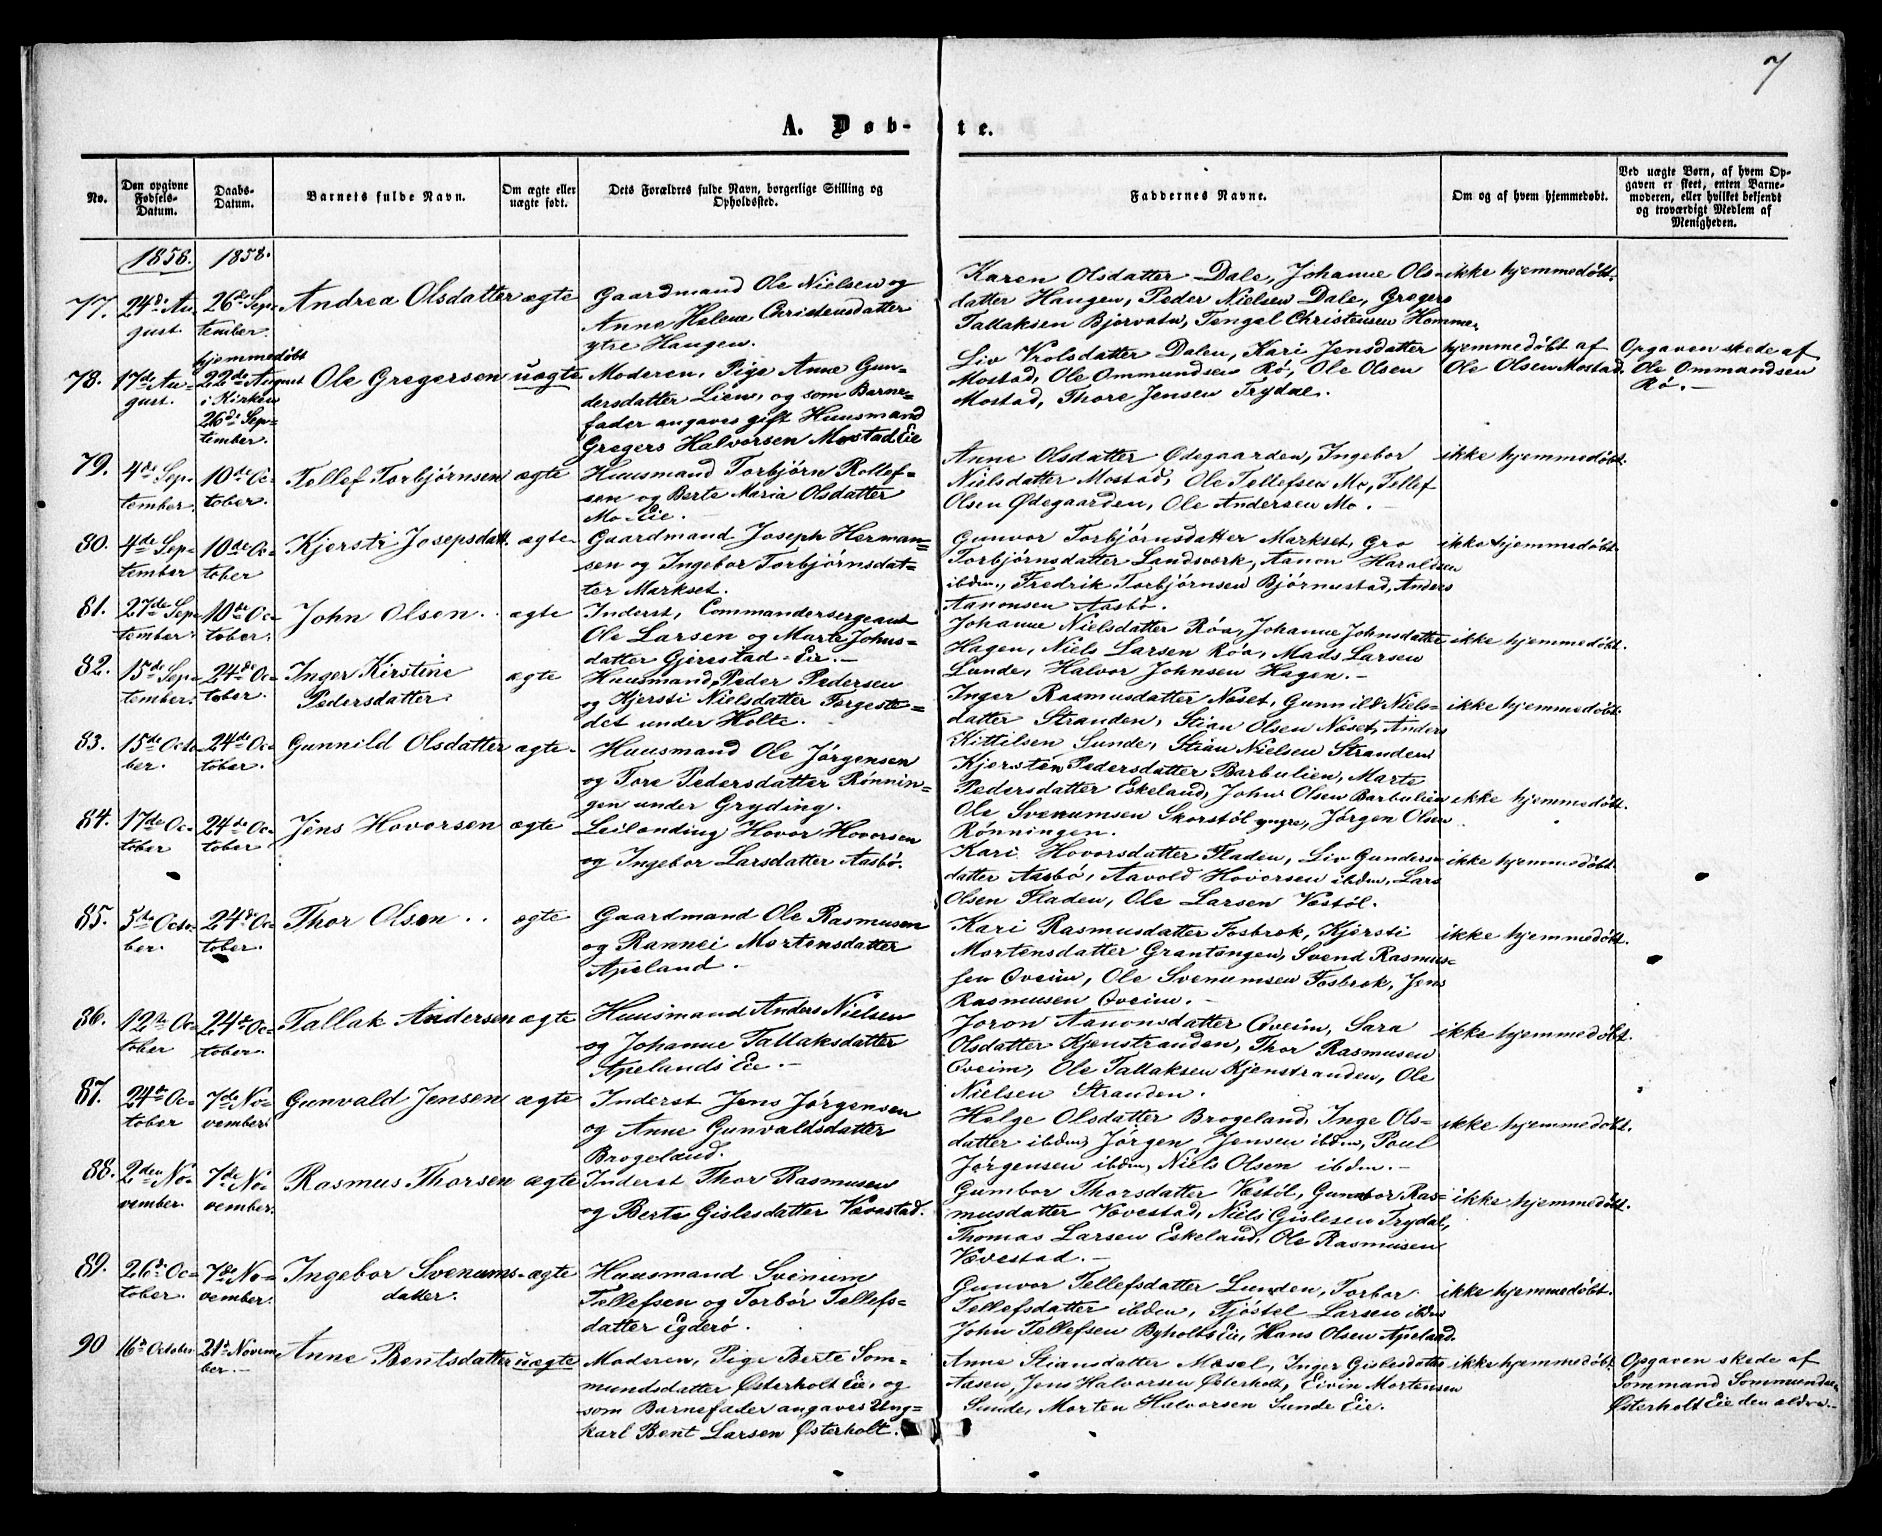 7
A. Døb- te.
No.
Den opgivne Fødsels-Datum.
Daabs-Datum.
Barnets fulde Navn.
Om ægte eller uægte født.
Dets Forældres fulde Navn, borgerlige Stilling og Opholdssted.
Faddernes Navne.
Om og af hvem hjemmedøbt.
Ved uægte Børn, af hvem Opgaven er skeet, enten Barnemoderen, eller hvilket bekjendt og troværdigt Medlem af Menigheden.
1858. 1858.
77. 24de Au-
gust.
26de Sep-
tember.
Andrea Olsdatter
ægte
Gaardmand Ole Nielsen og
Anne Helene Christensdatter
ytre Haugen.
Karen Olsdatter Dale, Johanne Ols-
datter Haugen, Peder Nielsen Dale, Gregers
Tallaksen Bjorvatn, Tengel Christensen Homme.
ikke hjemmedøbt.
78. 17de Au-
gust.
hjemmedøbt
22de August
i Kirken
26de Sep-
tember.
Ole Gregersen
uægte
Moderen, Pige Anne Gun-
dersdatter Lien, og som Barne-
fader angaves gift Huusmand
Gregers Halvorsen Mostad Eie
Liv Vrolsdatter Dalen, Kari Jensdatter
Mostad, Ole Ommundsen Rø, Ole Olsen
Mostad, Thore Jensen Trydal.
hjemmedøbt af
Ole Olsen Mostad.
Opgaven skede af
Ole Ommandsen
Rø.
79. 4de Sep-
tember.
10de Oc-
tober.
Tellef Torbjørnsen
ægte
Huusmand Torbjörn Rollef-
sen og Berte Maria Olsdatter
Mo Eie.
Anne Olsdatter Ødegaarden, Ingebor
Nielsdatter Mostad, Ole Tellefsen Mo, Tellef
Olsen Ødegaarden, Ole Andersen Mo.
ikke hjemmedøbt.
80. 4de Sep-
tember
10de Oc-
tober
Kjersti Josepsdatt.
ægte
Gaardmand Joseph Herman-
sen og Ingebor Torbjörnsdat-
ter Markset.
Gunvor Torbjörnsdatter Markset, Gro
Torbjörnsdatter Landsværk, Aanon Haroldsen
ibdm, Fredrik Torbjörnsen Bjórnustad, Anders
Aanonsen Aasbö.
ikke hjemmedøbt.
81. 27de Sep-
tember.
10de Oc-
tober.
John Olsen.
ægte
Inderst, Commandersergeant
Ole Larsen og Marte Johns-
datter Gjerestad-Eie.
Johanne Nielsdatter Röa, Johanne Johnsdatter
Hagen, Niels Larsen Röa, Mads Larsen
Lunde, Halvor Johnsen Hagen.
ikke hjemmedøbt.
82. 15de Sep-
tember.
24de Oc-
tober.
Inger Kirstine
Pedersdatter
ægte
Huusmand Peder Pedersen
og Kjersti Nielsdatter
under Holte.
Inger Rasmusdatter Næset, Gunnild Niels-
datter Stranden, Stian Olsen Næset, Anders
Kittilsen Sunde, Stian Nielsen Stranden
ikke hjemmedøbt.
83. 15de Octo-
ber.
24de Oc-
tober.
Gunnild Olsdatter
ægte
Huusmand Ole Jørgensen
og Tore Pedersdatter Rønnin-
gen under Gryding.
Kjersten Pedersdatter Barbulien, Marte
Pedersdatter Eskeland, John Olsen Barbulien
Ole Svenumsen Skorstöl yngre, Jørgen Olsen
Rönningen.
ikke hjemmedøbt.
84. 17de Oc-
tober
24de Oc-
tober
Jens Hovorsen
ægte
Leilending Hovor Hovorsen
og Ingebor Larsdatter Aasbö.
Kari Hovorsdatter Fladen, Liv Gunders-
datter Aasbö, Aavold Hovorsen ibdm, Lars
Olsen Fladen, Ole Larsen Væstöl.
ikke hjemmedøbt.
85. 5te Octo-
ber.
24de Oc-
tober.
Thor Olsen
ægte
Gaardmand Ole Rasmusen
og Rannei Mortensdatter
Apeland.
Kari Rasmusdatter Fosbrok, Kjersti
Mortensdatter Grantangen, Svend Rasmus-
sen Oveim, Ole Svenumsen Fosbrok, Jens
Rasmusen Oveim.
ikke hjemmedøbt.
86. 12te Oc-
tober
24de Oc-
tober.
Tallak Andersen
ægte
Huusmand Anders Nielsen
og Johanne Tallaksdatter
Apelands Eie.
Joron Aanonsdatter Oveim, Sara
Olsdatter Kjenstranden, Thor Rasmusen
Oveim, Ole Tallaksen Kjenstranden, Ole
Nielsen Stranden.
ikke hjemmedøbt.
87. 24de Oc-
tober
7de No-
vember.
Gunvald Jensen
ægte
Inderst Jens Jørgensen
og Anne Gunvaldsdatter
Brogeland.
Helge Olsdatter Brogeland, Inge Ols-
datter ibdm, Jørgen Jensen ibdm, Poul
Jørgensen ibdm, Niels Olsen ibdm.
ikke hjemmedøbt.
88. 2den No-
vember.
7de No-
vember.
Rasmus Thorsen
ægte
Inderst Thor Rasmusen
og Berte Gislesdatter Vævestad.
Gumbor Thorsdatter Væstöl, Gumbor Ras-
musdatter Vævestad, Niels Gislesen Trydal,
Thomas Larsen Eskeland, Ole Rasmusen
Vævestad.
ikke hjemmedøbt.
89. 26de Oc-
tober.
7de No-
vember.
Ingebor Svenums-
datter.
ægte
Huusmand Svenum
Tellefsen og Torbör Tellefs-
datter Egderö.
Gunvor Tellefsdatter Lunden, Torbor
Tellefsdatter ibdm, Fjöstel Larsen ibdm
John Tellefsen Byholts Eie, Hans Olsen Apeland.
ikke hjemmedøbt.
90 16de October
21de Novem-
ber.
Anne Bentsdatter
uægte
Moderen, Pige Berte Som-
mundsdatter Østerholt Eie, og
som Barnefader angaves Ung-
karl Bent Larsen Østerholt.
Anne Stiansdatter Mæsel, Inger Gislesdatter
Aasen, Jens Halvorsen Østerholt, Eivin Mortensen
Sunde, Morten Halvorsen Sunde Eie.
ikke hjemmedøbt
Opgaven skede af
Sommund Sommundsen
Østerholt Eie den ældre.